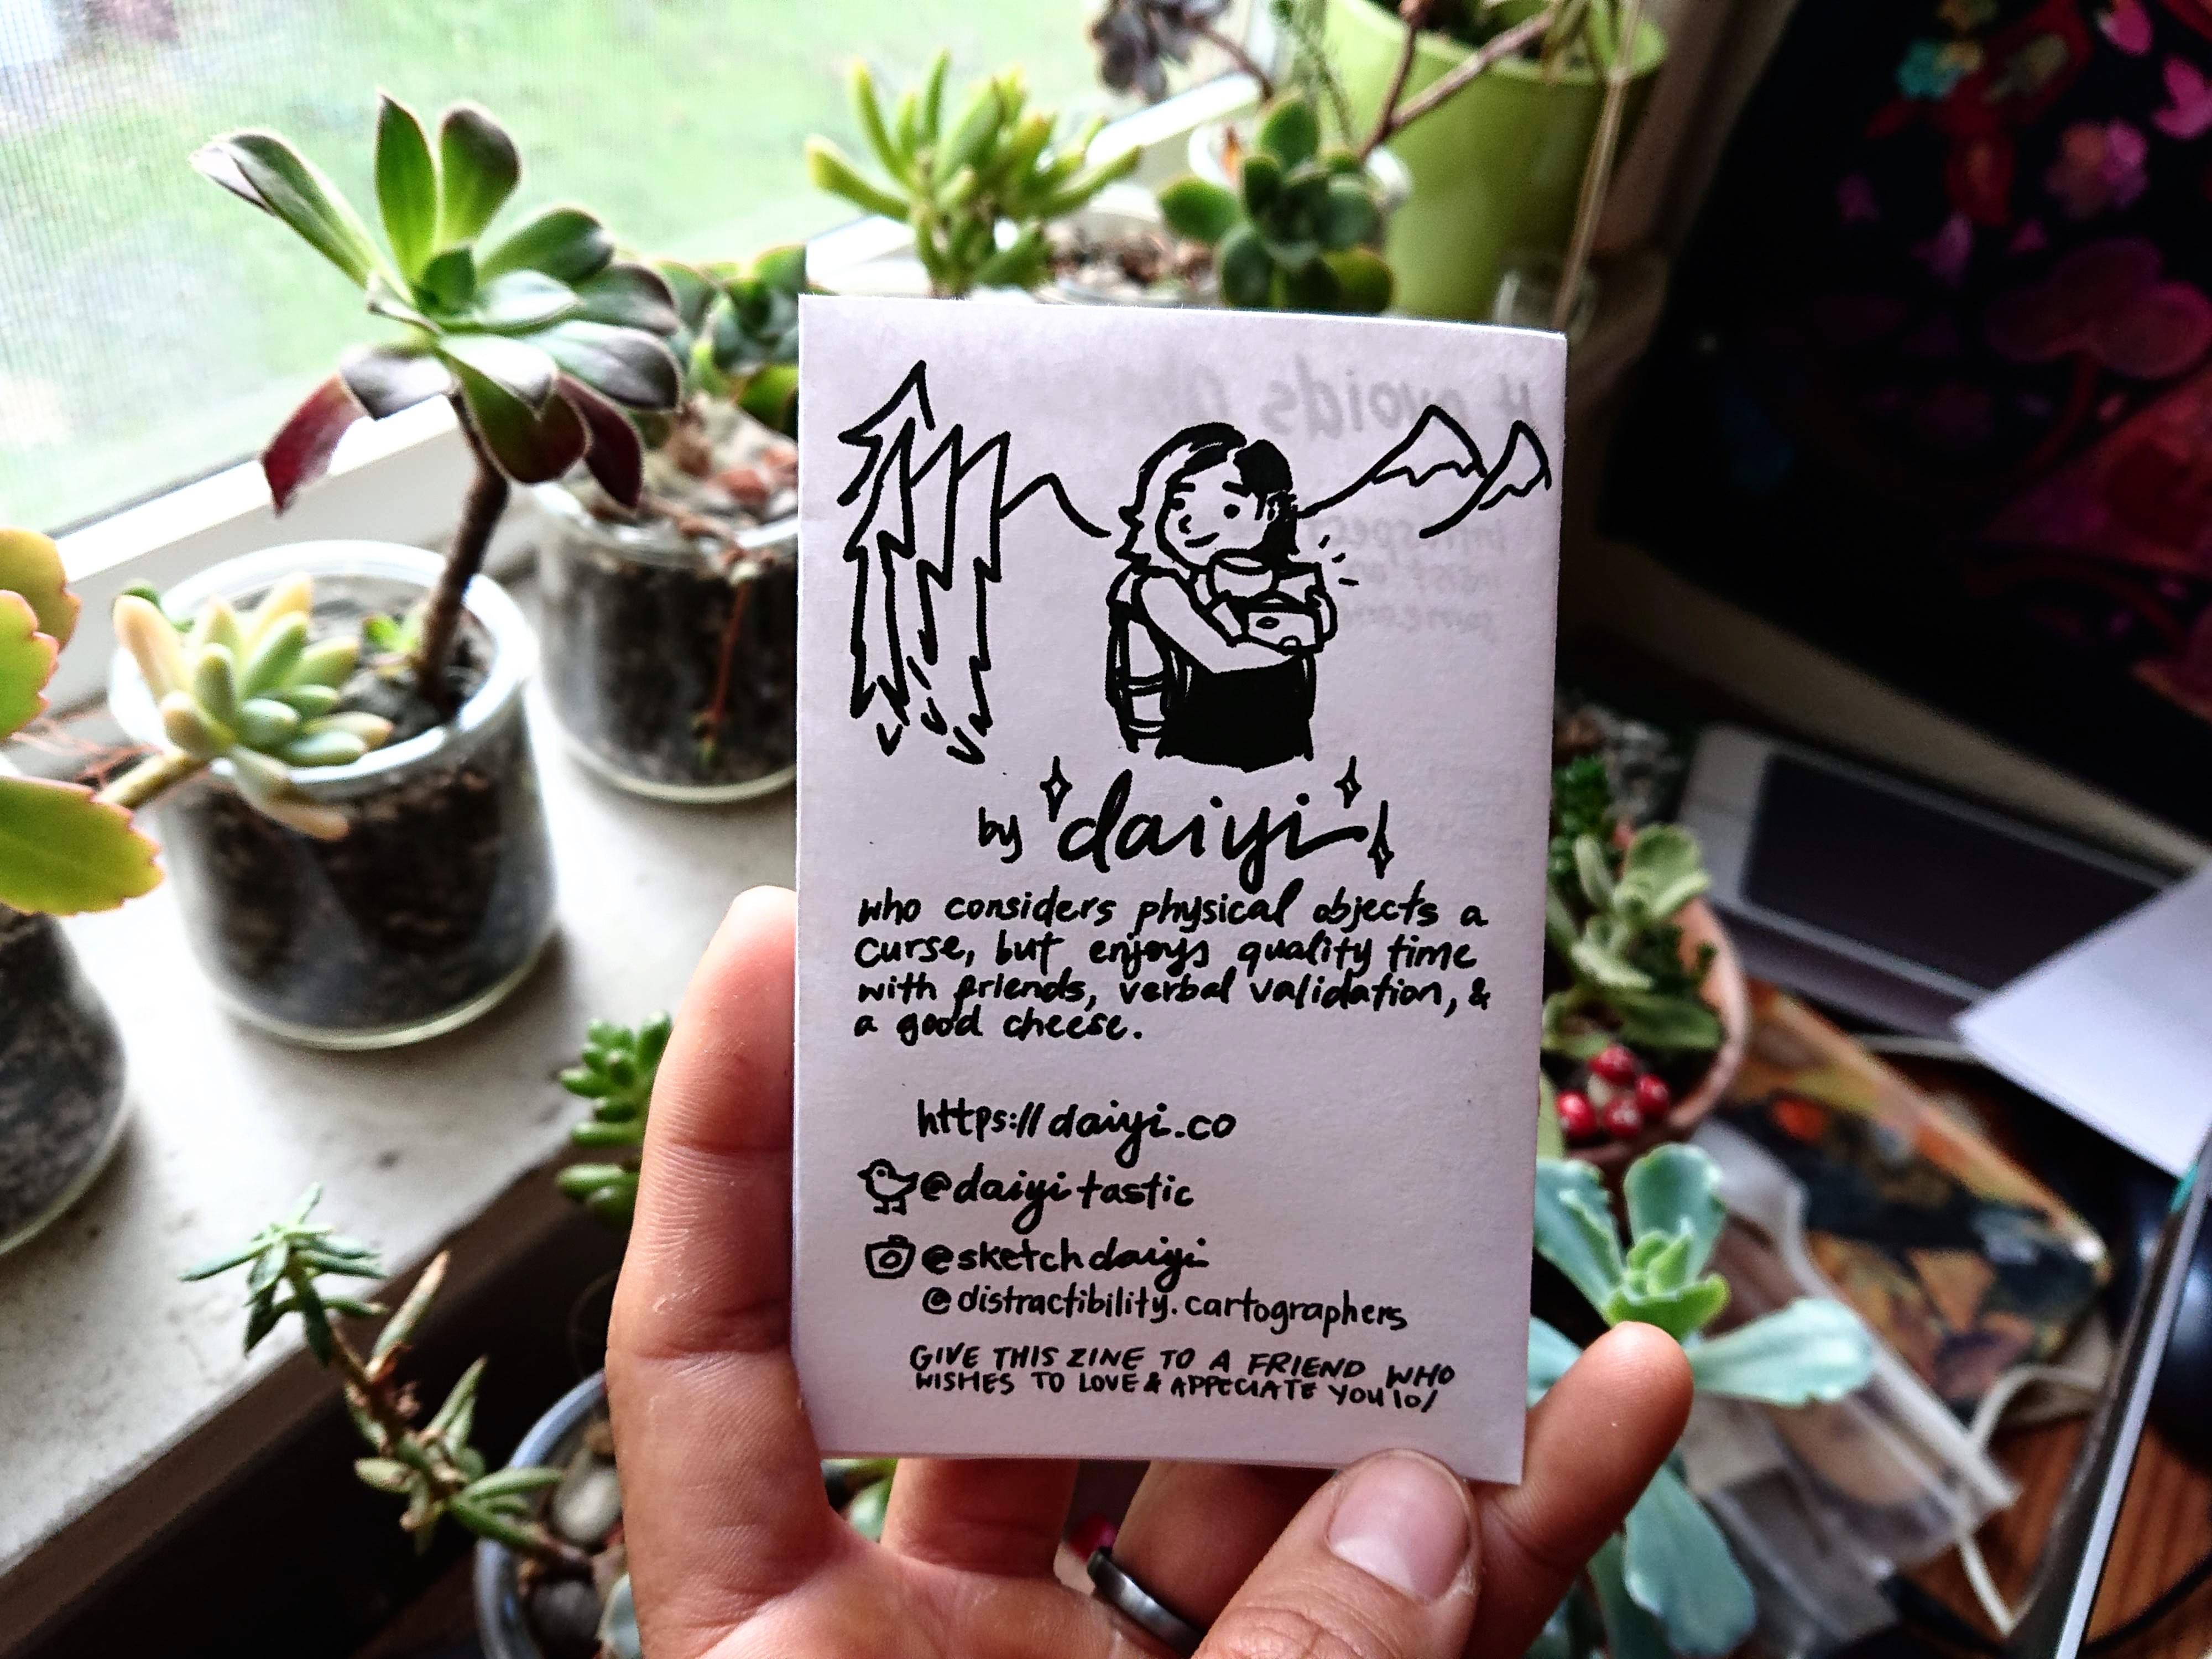 by daiyi
who considers physical objects a
curse, but enjoys quality time
with friends, verbal validation, &
a good cheese.
https://daiyi.co
@daiyitastic
@sketchdaiyi
@distractibility.cartographers
GIVE THIS ZINE TO A FRIEND WHO
WISHES TO LOVE & APPECIATE YOU \o/